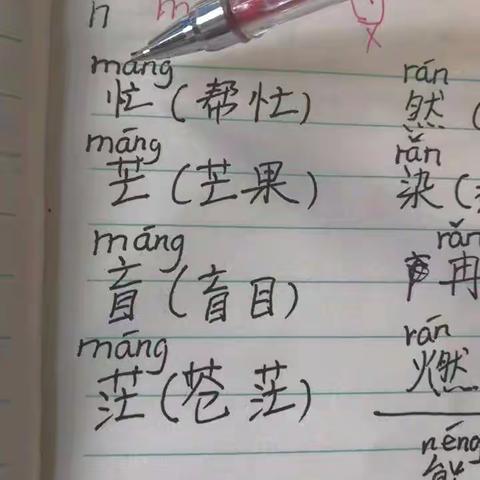 n m
x
máng rán
忙(帮忙) 然(
máng rǎn
芒(芒果) 染(
máng rǎn
盲(盲目) 冉
máng rán
茫(苍茫) 燃
néng